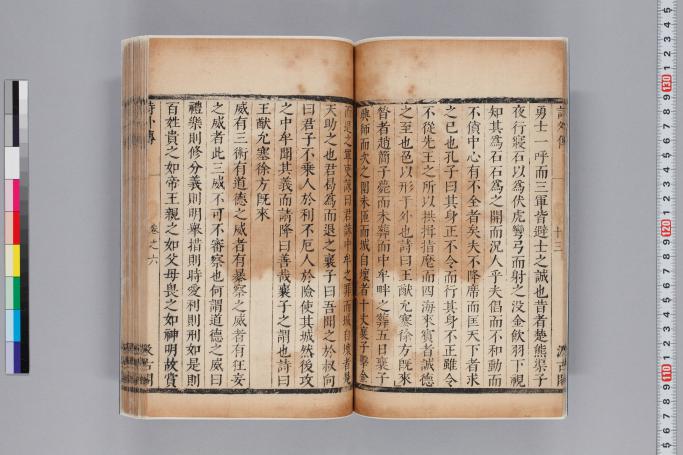 勇士一呼而三軍皆避士之誠也昔者楚熊渠子
夜行寢石以爲伏虎彎弓而射之没金飲羽下視
知其爲石石爲之開而況人乎夫倡而不和動而
不僨中心有不全者矣夫不降席而匡天下者求
之己也孔子曰其身正不令而行其身不正雖令
不從先王之所以拱揖指麾而四海來賓者誠德
之至也色以形于外也詩曰王猷允塞徐方既來
昔者趙簡子薨而未葬而中牟畔之葬五日襄子
興師而次之圍未匝而城自壞者十丈襄子擊金
而退之軍吏諫曰君誅中牟之罪而城自壞者是
天助之也君曷爲而退之襄子曰吾聞之於叔向
曰君子不乗人於利不厄人於險使其城然後攻
之中牟聞其義而請降曰善哉襄子之謂也詩曰
王猷允塞徐方既來
威有三術有道德之威者有暴察之威者有狂妄
之威者此三威不可不審察也何謂道德之威曰
禮樂則修分義則明舉措則時愛利則刑如是則
百姓貴之如帝王親之如父母畏之如神明故賞
詩外傳
卷之六
十三
汲古閣